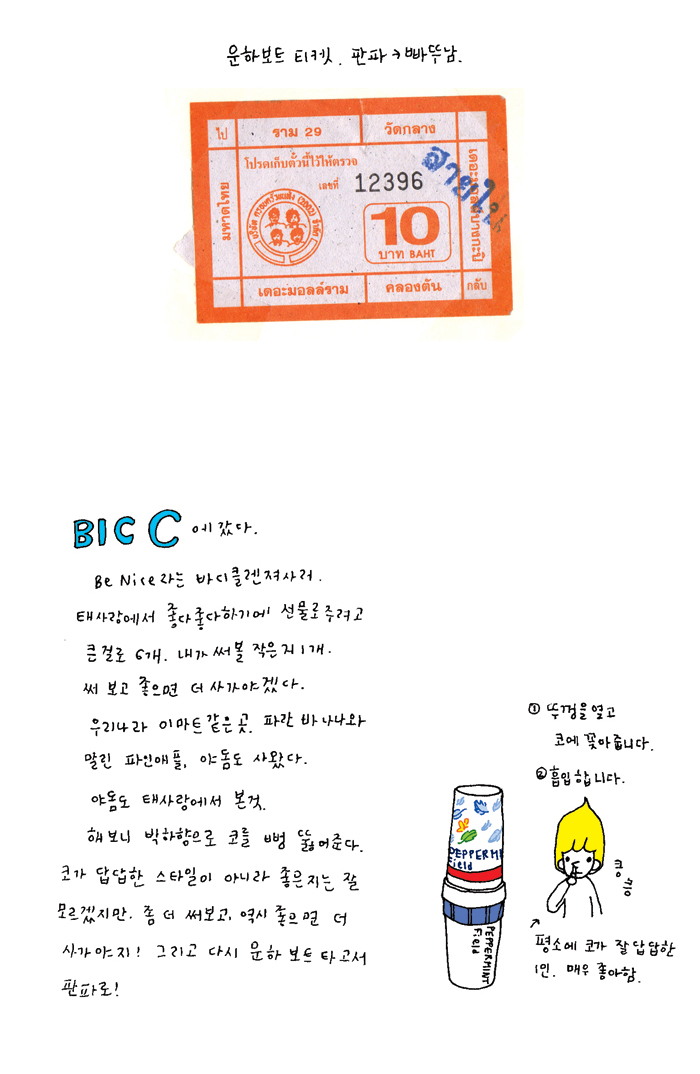 운하보트 티켓. 판파→빠뚜남.
ไป
ราม 29
วัดกลาง
โปรดเก็บตั๋วนี้ไว้ให้ตรวจ
เลขที่ 12396
มหาดไทย
บริษัท ครอบครัวขนส่ง (2002) จำกัด
10
บาท BAHT
เดอะมอลล์บางกะปิ
เดอะมอลล์ราม
คลองตัน
กลับ
BIG C에 갔다.
Be Nice라는 바디클렌져사러.
태사랑에서 좋다좋다하기에 선물로주려고
큰걸로 6개. 내가 써볼 작은거 1개.
써 보고 좋으면 더 사가야겠다.
우리나라 이마트같은곳. 파란 바나나와
말린 파인애플, 야돔도 사왔다.
야돔도 태사랑에서 본것.
해보니 박하향으로 코를 뻥 뚫어준다.
코가 답답한 스타일이 아니라 좋은지는 잘
모르겠지만. 좀 더 써보고, 역시 좋으면 더
사가야지! 그리고 다시 운하 보트타고서
판파로!
① 뚜껑을 열고
코에 꽂아줍니다.
② 흡입합니다.
PEPPERMI
Field
PEPPERMINT
Field
킁
킁
평소에 코가 잘 답답한
1인. 매우 좋아함.